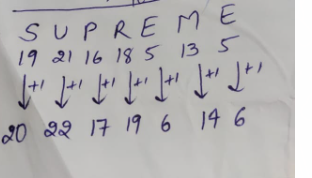 S U P R E M E
19 21 16 18 5 13 5
↓+1 ↓+1 ↓+1 ↓+1 ↓+1 ↓+1 ↓+1
20 22 17 19 6 14 6